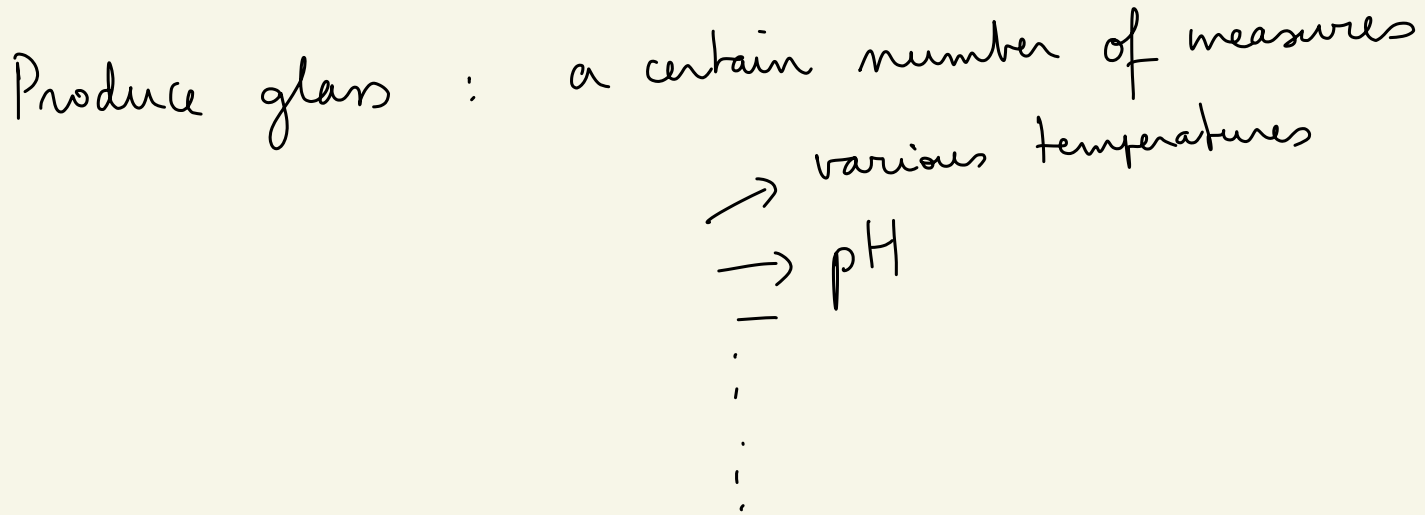 Produce glass : a certain number of measures
→ various temperatures
→ pH
—